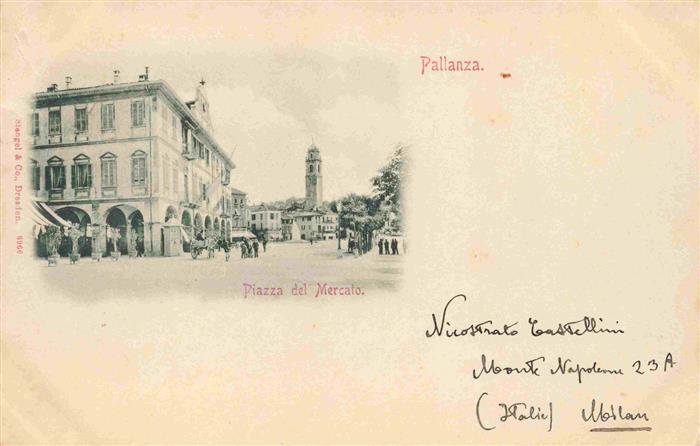 Pallanza.
Stengel & Co., Dresden. 6966
Piazza del Mercato.
Nicostrato Castellini
Monte Napoleone 23A
(Italie) Milan